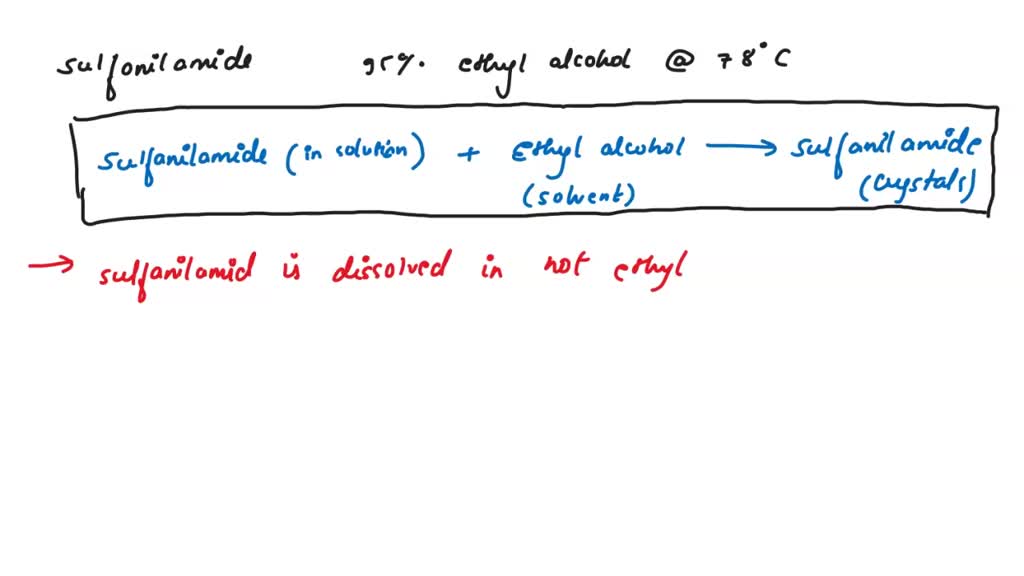 sulfonilamide 95%. ethyl alcohol @ 78°C
sulfanilamide (in solution) + Ethyl alcohol → sulfanilamide
(solvent) (crystals)
→ sulfanilamid is dissolved in hot ethyl